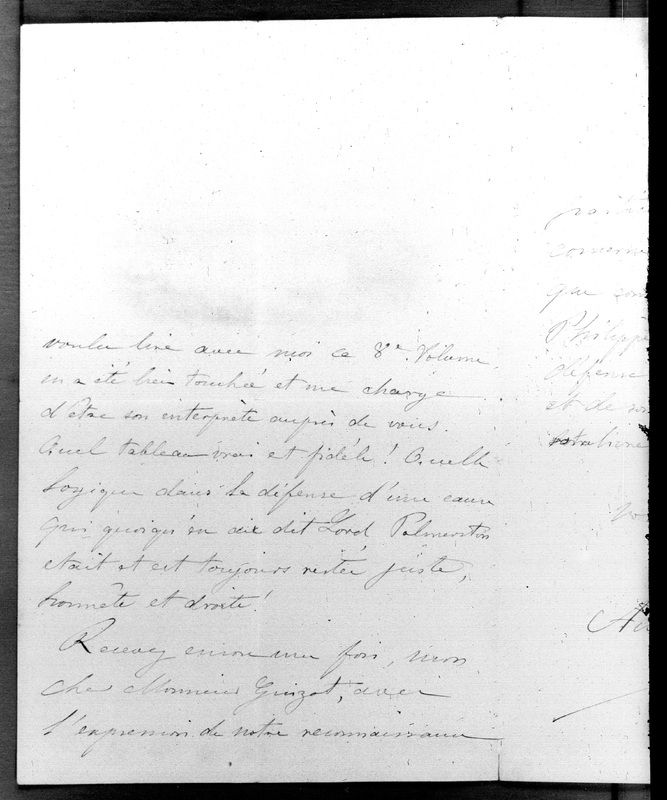 voulu lire avec moi ce 8e. Volume
en a été bien touchée et me charge
d'être son interprète auprès de vous.
Quel tableau vrai et fidèle! Quelle
logique dans la défense d'une cause
qui quoiqu'en aie dit Lord Palmerston
était et est toujours restée juste,
honnête et droite!
Recevez encore une fois, mon
cher Monsieur Guizot, avec
l'expression de notre reconnaissance
concerne
que
Philippe
défense
et de